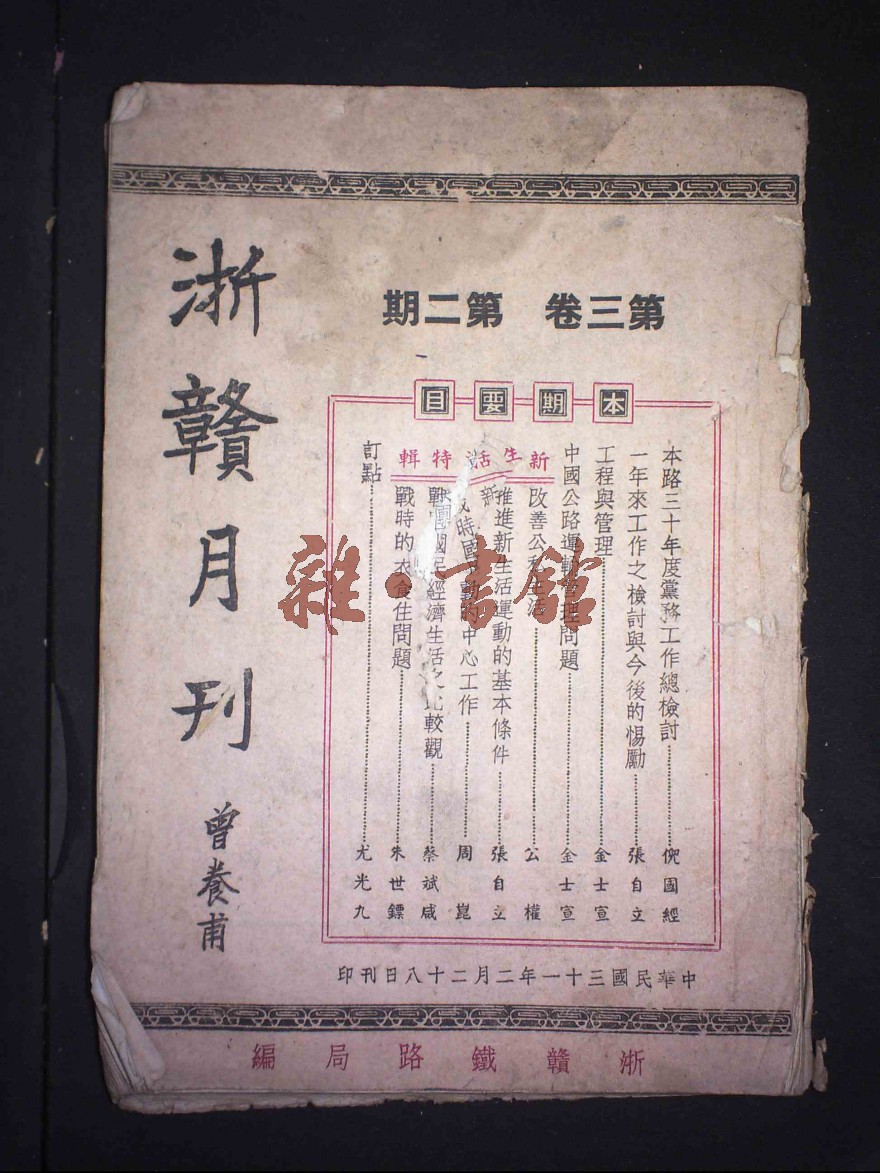 浙贛月刊
曾養甫
第三卷 第二期
本期要目
本路三十年度黨務工作總檢討 倪國經
一年來工作之檢討與今後的惕勵 張自立
工程與管理 金士宣
中國公路運輸管理問題 金士宣
新生活特輯
改善公私生活 公權
推進新生活運動的基本條件 張自立
時國 動的中心工作 周崑
國民經濟生活之比較觀 蔡斌咸
戰時的衣食住問題 朱世鏢
訂點 尤光九
中華民國三十一年二月二十八日刊印
浙贛鐵路局編
雜·書館